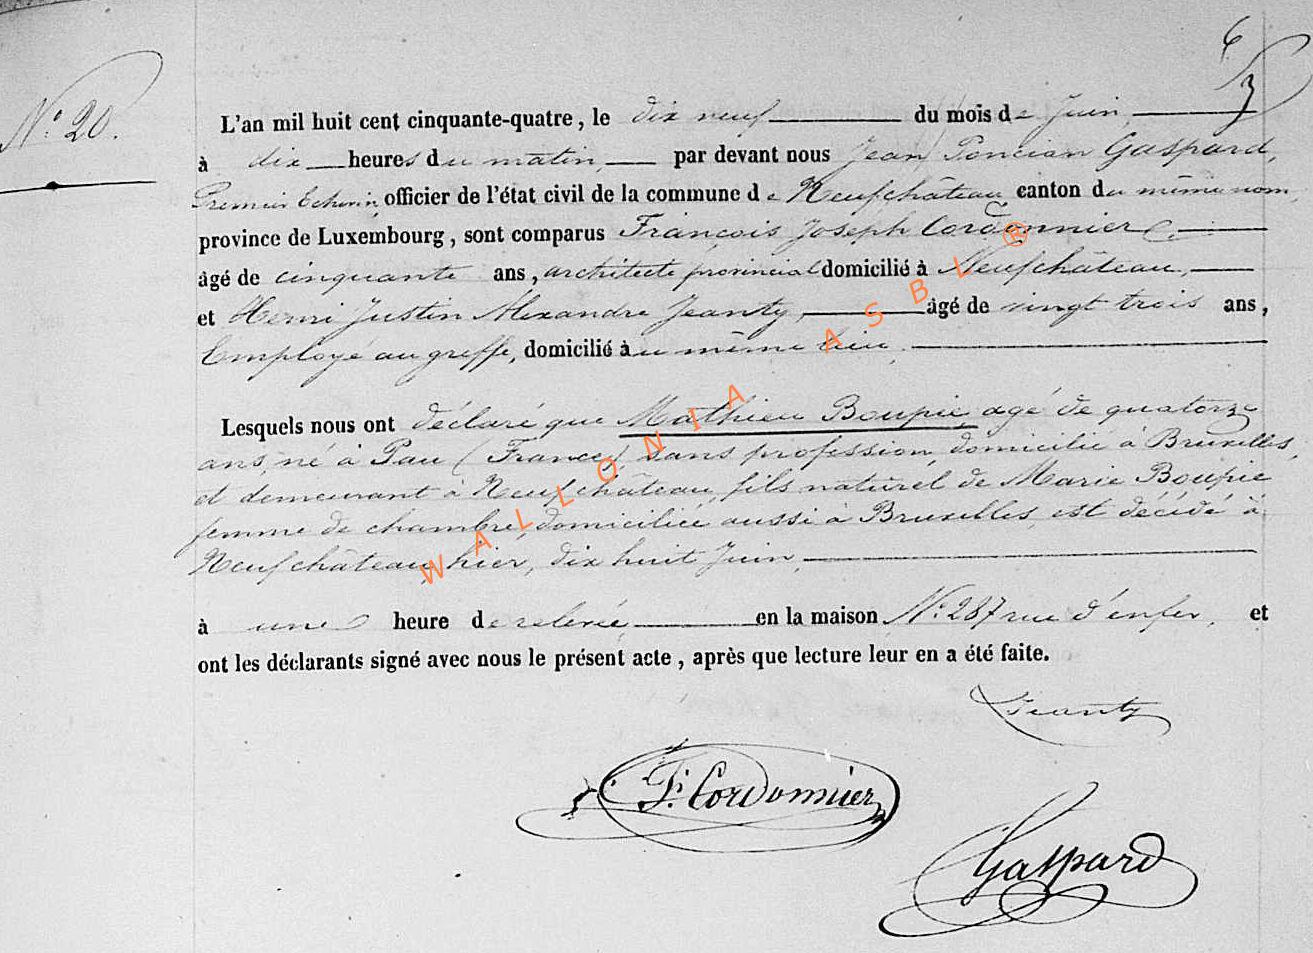 N° 20.
L'an mil huit cent cinquante-quatre, le dix neuf du mois de Juin
à dix heures du matin, par devant nous Jean Poncian Gaspard,
Premier Echevin, officier de l'état civil de la commune de Neufchâteau, canton du même nom,
province de Luxembourg, sont comparus François Joseph Cordonnier
âgé de cinquante ans, architecte provincial domicilié à Neufchâteau,
et Henri Justin Alexandre Jeanty, âgé de vingt trois ans,
Employé au greffe, domicilié au même lieu,
Lesquels nous ont déclaré que Mathieu Boupie, agé de quatorze
ans, né à Pau (France) sans profession, domicilié à Bruxelles,
et demeurant à Neufchâteau, fils naturel de Marie Boupie
femme de chambre, domiciliée aussi à Bruxelles, est décédé à
Neufchâteau, hier, dix huit Juin,
à une heure de relevée en la maison N° 287 rue d'enfer, et
ont les déclarants signé avec nous le présent acte, après que lecture leur en a été faite.
Jeanty
F. Cordonnier
Gaspard
WALLONIA ASBL ®